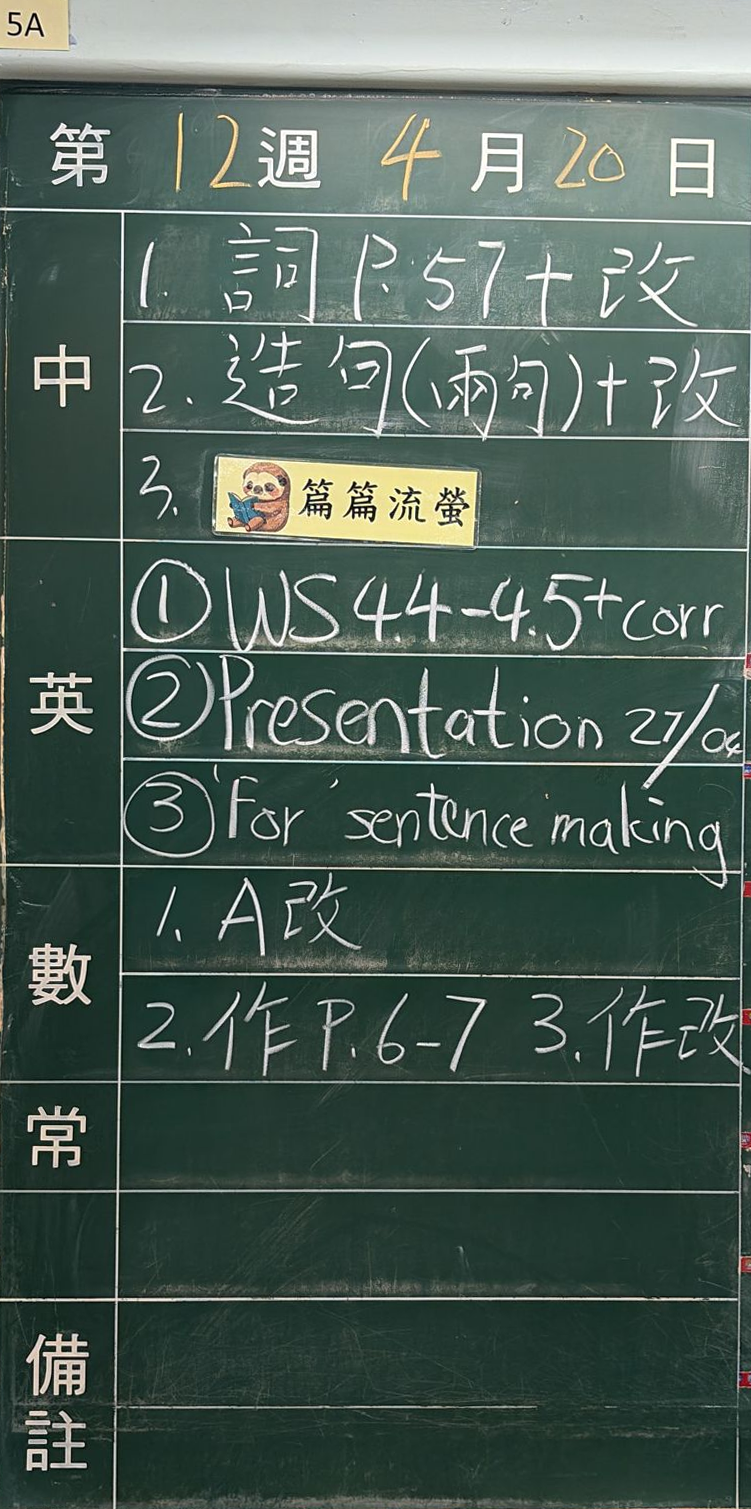 5A
第 12 週 4 月 20 日
中
1. 詞 P.57 + 改
2. 造句(兩句) + 改
3. 篇篇流螢
英
① WS 4.4-4.5 + corr
② Presentation 27/04
③ 'For' sentence making
數
1. A改
2. 作 P.6-7 3. 作改
常
備註